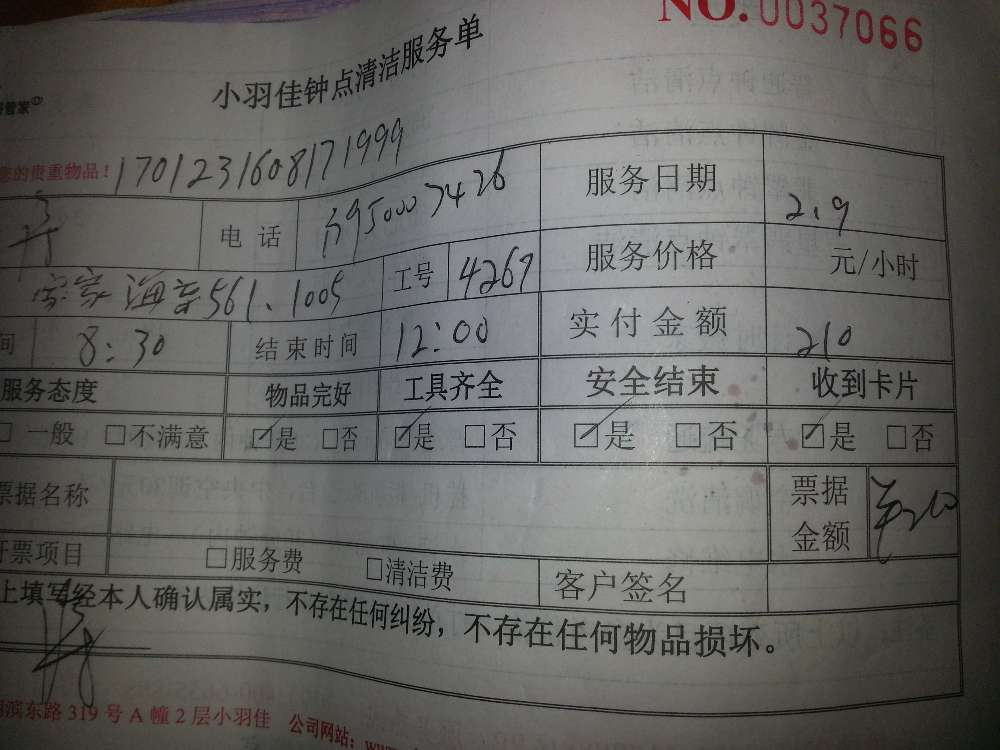 NO.0037066
小羽佳钟点清洁服务单
管家
您的贵重物品! 1701231608171999
电话 服务日期 2.9
561.1005 工号 4267 服务价格 元/小时
间 8:30 结束时间 12:00 实付金额 210
服务态度 物品完好 工具齐全 安全结束 收到卡片
□一般 □不满意 ☑是 □否 ☑是 □否 ☑是 □否 ☑是 □否
票据名称 票据金额 ¥210
开票项目 □服务费 □清洁费 客户签名
上填写经本人确认属实，不存在任何纠纷，不存在任何物品损坏。
滨东路319号A幢2层小羽佳 公司网站：